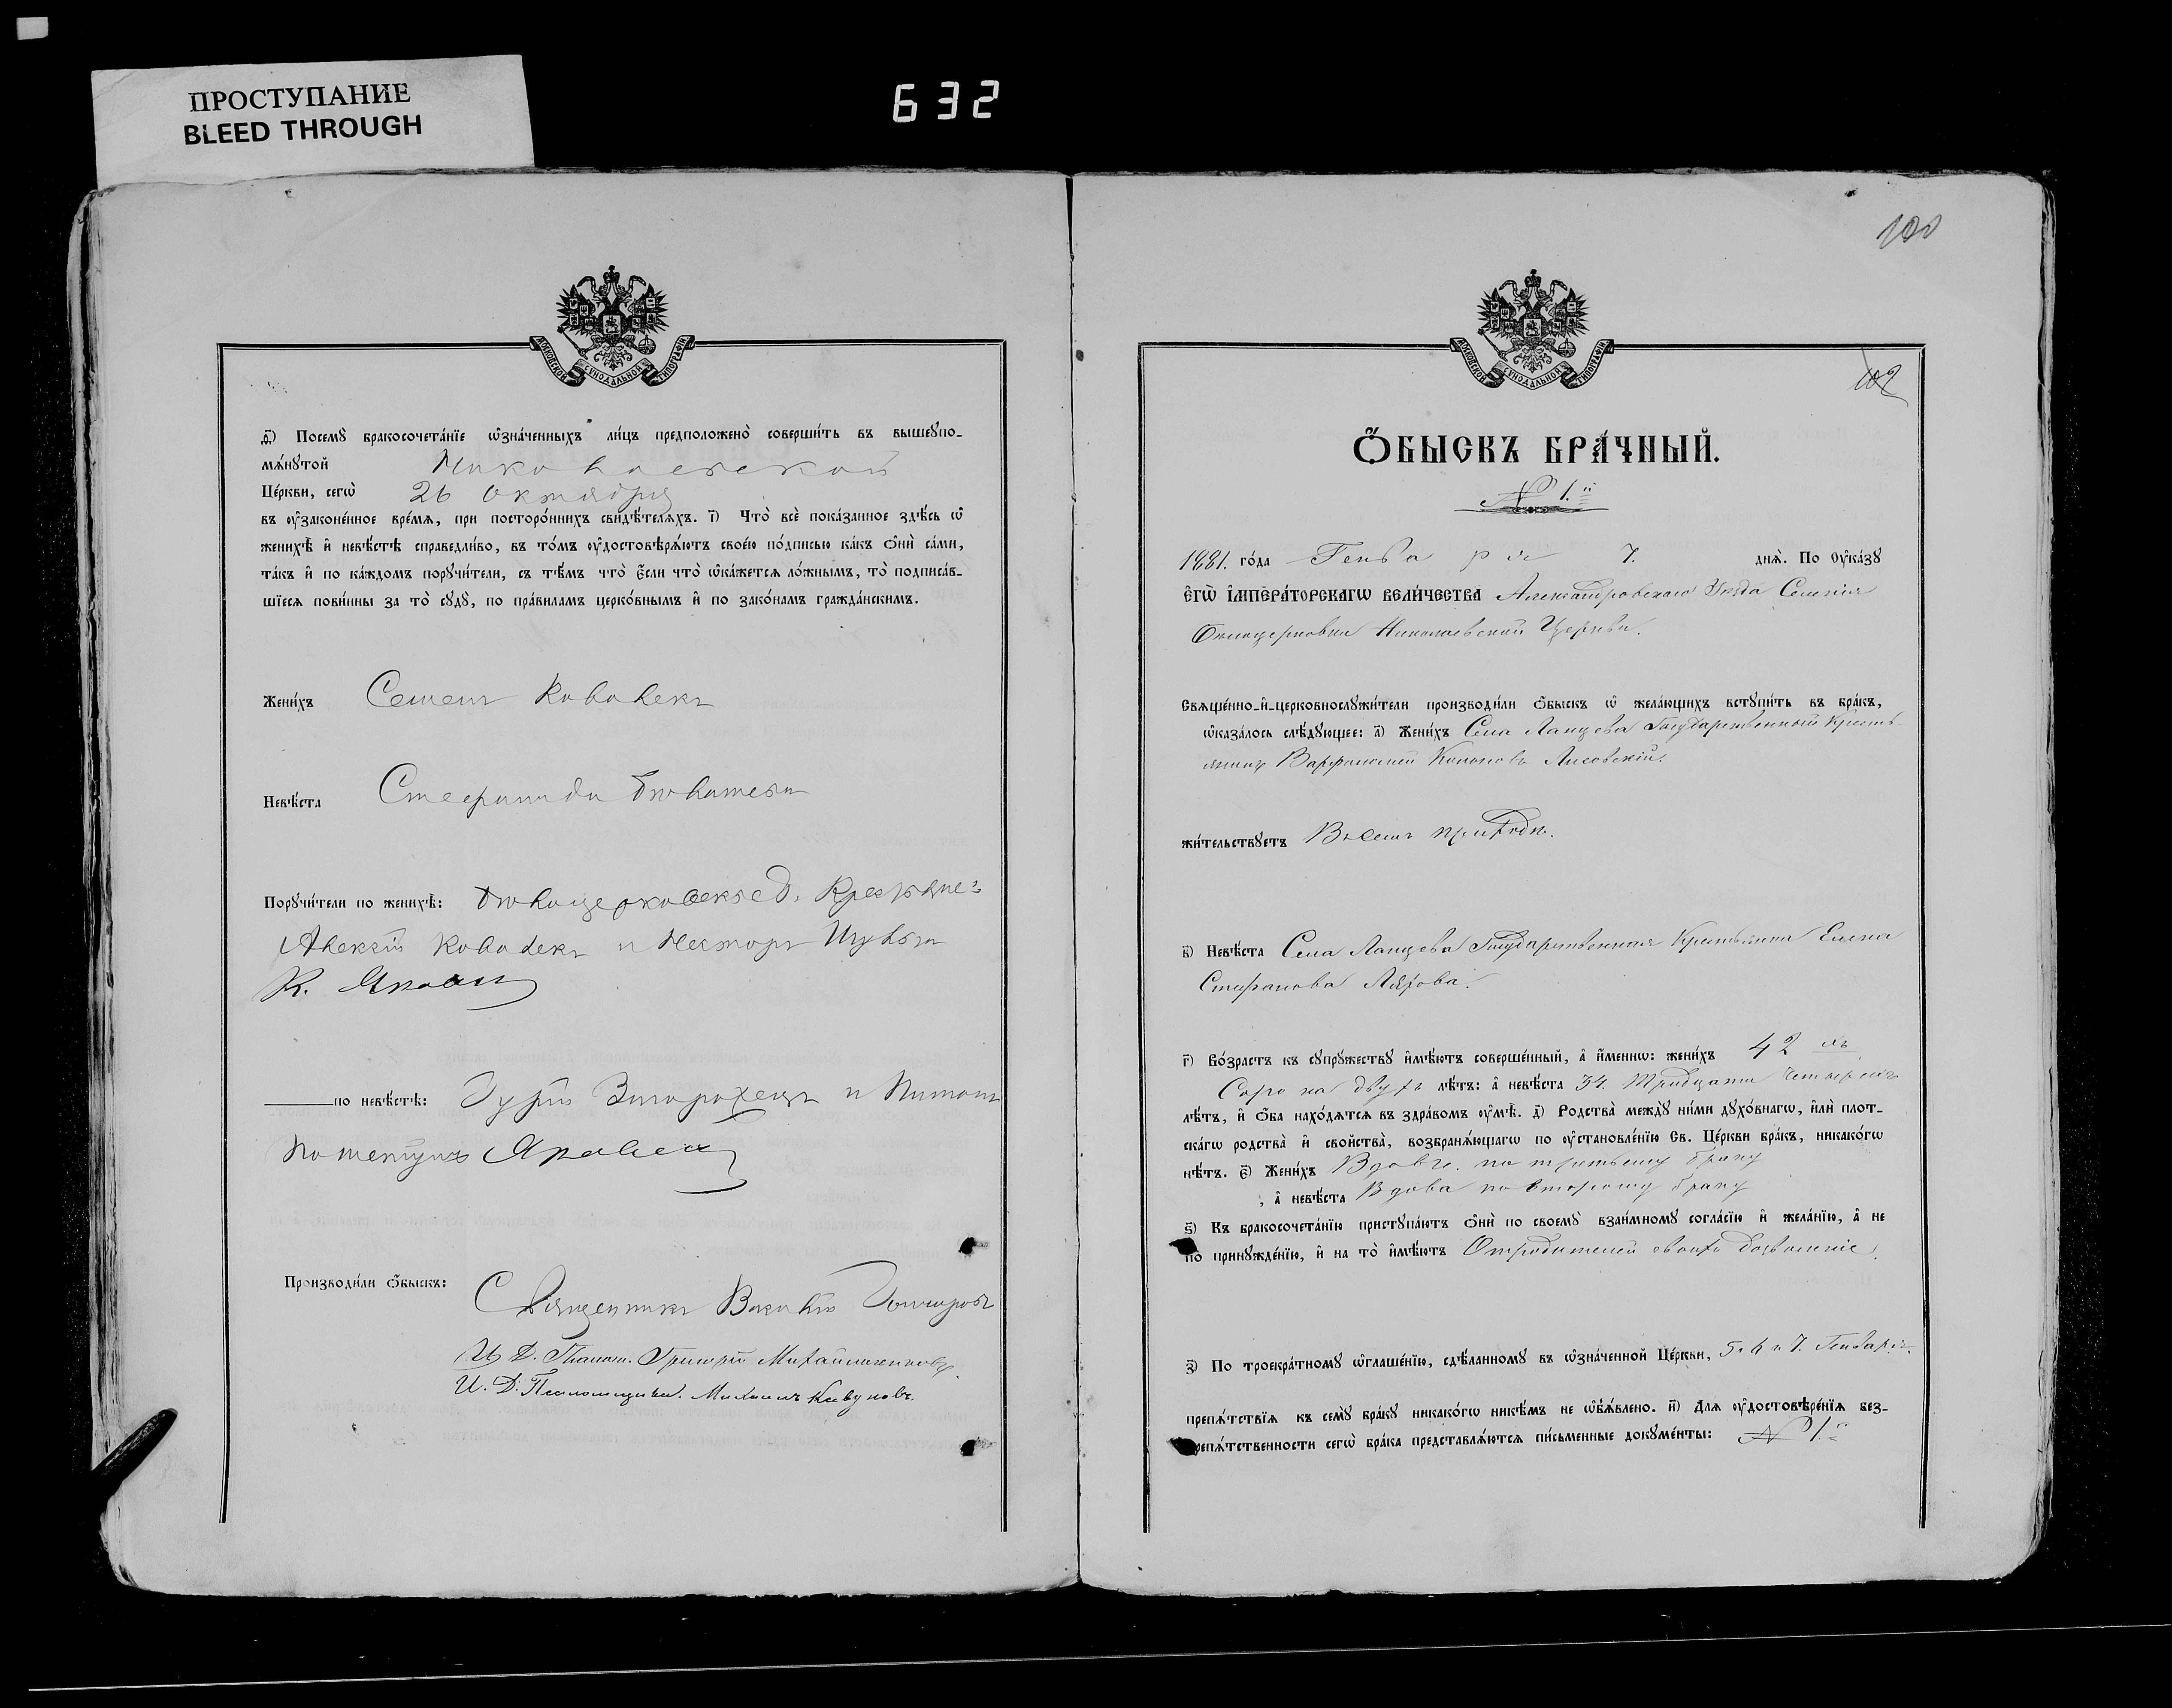 ПРОСТУПАНИЕ
BLEED THROUGH
632
МОСКОВСКОЙ СѴНОДАЛЬНОЙ ТИПОГРАФІИ
д҃) Посемꙋ̀ бракосочета́нїе ѡ҆зна́ченныхъ ли́цъ предположено̀ соверши́ть въ вышеꙋпо-
мѧ́нꙋтой Николаевской
Це́ркви, сегѡ̀ 26 Октября
въ ᲂу҆законе́нное вре́мѧ, при посторо́ннихъ свидѣ́телѧхъ. і҃) Что̀ всѐ пока́занное здѣ́сь ѡ҆
женихѣ̀ и҆ невѣ́стѣ справедли́во, въ то́мъ ᲂу҆достовѣрѧ́ютъ свое́ю по́дписью ка́къ ѻ҆нѝ са́ми,
та́къ и҆ по ка́ждомъ порꙋчи́тели, съ тѣ́мъ что̀ є҆́сли что̀ ѡ҆ка́жетсѧ ло́жнымъ, то̀ подписа́в-
шїесѧ пови́нны за то̀ сꙋдꙋ̀, по пра́виламъ церко́внымъ и҆ по зако́намъ гражда́нскимъ.
Жени́хъ Семенъ Ковалекъ
Невѣ́ста Стефанида
Порꙋчи́тели по женихѣ̀:
Алексѣй Ковалекъ и Несторъ
по невѣ́стѣ: Гурій Запорожецъ и
Производи́ли ѻ҆́быскъ: Священникъ
И. Д. Псаломщика. Михаилъ Кавуновъ.
100
102
МОСКОВСКОЙ СѴНОДАЛЬНОЙ ТИПОГРАФІИ
Ѻ҆́БЫСКЪ БРА́ЧНЫЙ.
№ 1.й
1881. го́да Генваря 7. днѧ̀. По ᲂу҆ка́зꙋ
Є҆ГѠ̀ І҆МПЕРА́ТОРСКАГѠ ВЕЛИ́ЧЕСТВА Александровскаго Уѣзда Селенія
Николаевской Церкви.
Свѧще́нно-и҆-церковнослꙋжи́тели производи́ли ѻ҆́быскъ ѡ҆ жела́ющихъ встꙋпи́ть въ бра́къ,
ѡ҆каза́лось слѣ́дꙋющее: а҃) Жени́хъ Села Ланцева Государственный Кресть-
янинъ Варфоломей Кононовъ Лисовскій.
жи́тельствꙋетъ Въ семъ приходѣ.
в҃) Невѣ́ста Села Ланцева Государственная Крестьянка Елена
Стефанова
г҃) Во́зрастъ къ сꙋпрꙋ́жествꙋ и҆мѣ́ютъ соверше́нный, а҆ и҆́меннѡ: жени́хъ 42 хъ
Сорока двухъ лѣ́тъ: а҆ невѣ́ста 34. Тридцати Четырехъ
лѣ́тъ, и҆ ѻ҆́ба нахо́дѧтсѧ въ здра́вомъ ᲂу҆мѣ̀. д҃) Родства̀ междꙋ̀ ни́ми дꙋхо́внагѡ, и҆лѝ плот-
ска́гѡ родства̀ и҆ сво́йства̀, возбранѧ́ющагѡ по ᲂу҆становле́нїю Св. Це́ркви бра́къ, никако́гѡ
нѣ́тъ. є҃) Жени́хъ Вдовъ. по третьему браку
, а҆ невѣ́ста Вдова по второму браку
ѕ҃) Къ бракосочета́нїю пристꙋпа́ютъ ѻ҆нѝ по своемꙋ̀ взаи́мномꙋ согла́сїю и҆ жела́нїю, а҆ не
по принꙋжде́нїю, и҆ на то̀ и҆мѣ́ютъ Отродителей своихъ дозволеніе.
з҃) По троекра́тномꙋ ѡ҆глаше́нїю, сдѣ́ланномꙋ въ ѡ҆зна́ченной Це́ркви, 5. 6 и 7. Генваря.
препѧ́тствїѧ къ семꙋ̀ бра́кꙋ никако́гѡ никѣ́мъ не ѡ҆б̾ѧ́влено. и҃) Длѧ ᲂу҆достовѣре́нїѧ без-
препѧ́тственности сегѡ̀ бра́ка представлѧ́ютсѧ пи́сьменные докꙋме́нты: № 1.й